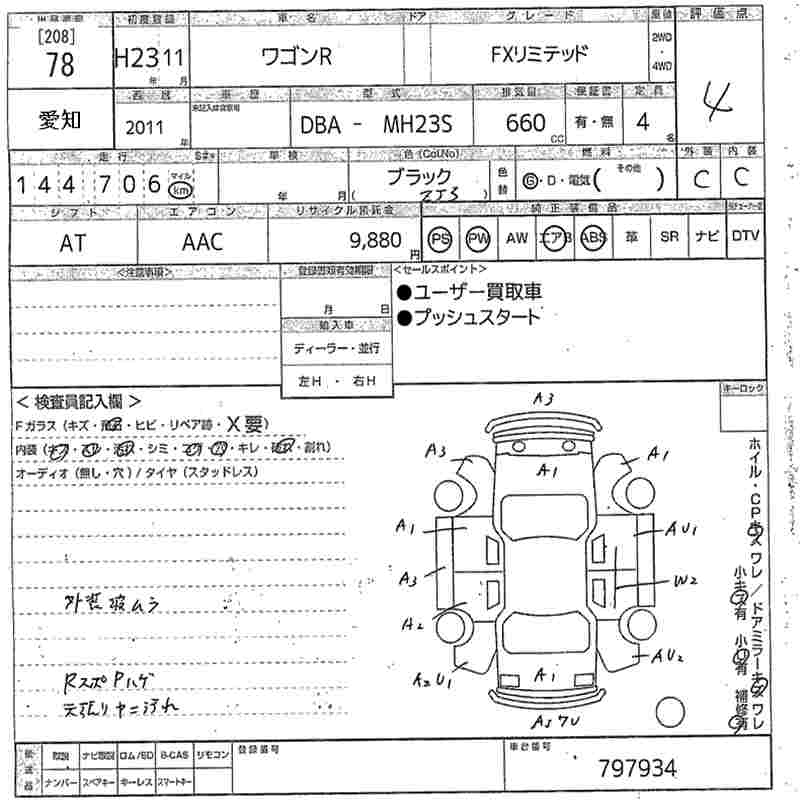 初度登録 車名 ドア グレード 評価点
[208]
78 H23 11 ワゴンR FXリミテッド 2WD・4WD
年 月
愛知 2011 年 DBA - MH23S 660 CC 有・無 4 名 4
型式 排気量 保証書 定員
走行 車検 色(Col.No) 燃料 外装 内装
144706 マイル km 年 月 ブラック 色替 G・D・電気( その他 ) C C
( ZJ3 )
シフト エアコン リサイクル預託金 純正装備品
AT AAC 9,880 円 PS PW AW エアB ABS 革 SR ナビ DTV
<注意事項> 登録書類有効期限 <セールスポイント>
月 日
●ユーザー買取車
●プッシュスタート
輸入車
ディーラー・並行
左H ・ 右H
< 検査員記入欄 >
キーロック
Fガラス (キズ・飛石・ヒビ・リペア跡・X要)
オーディオ (無し・穴) / タイヤ (スタッドレス)
A3
A3 A1 A1
A1 AU1
A3 W2
A2
A2U1 A1 AU2
外装 ムラ
Rスポ Pハゲ
天張りヤニ汚れ
ホイル・CPキズワレ/ドアミラーキズワレ
小キズ有 小凹有 補修有
取説 ナビ取説 ロム/SD B-CAS リモコン 登録番号 車台番号
ナンバー スペアキー キーレス スマートキー
797934